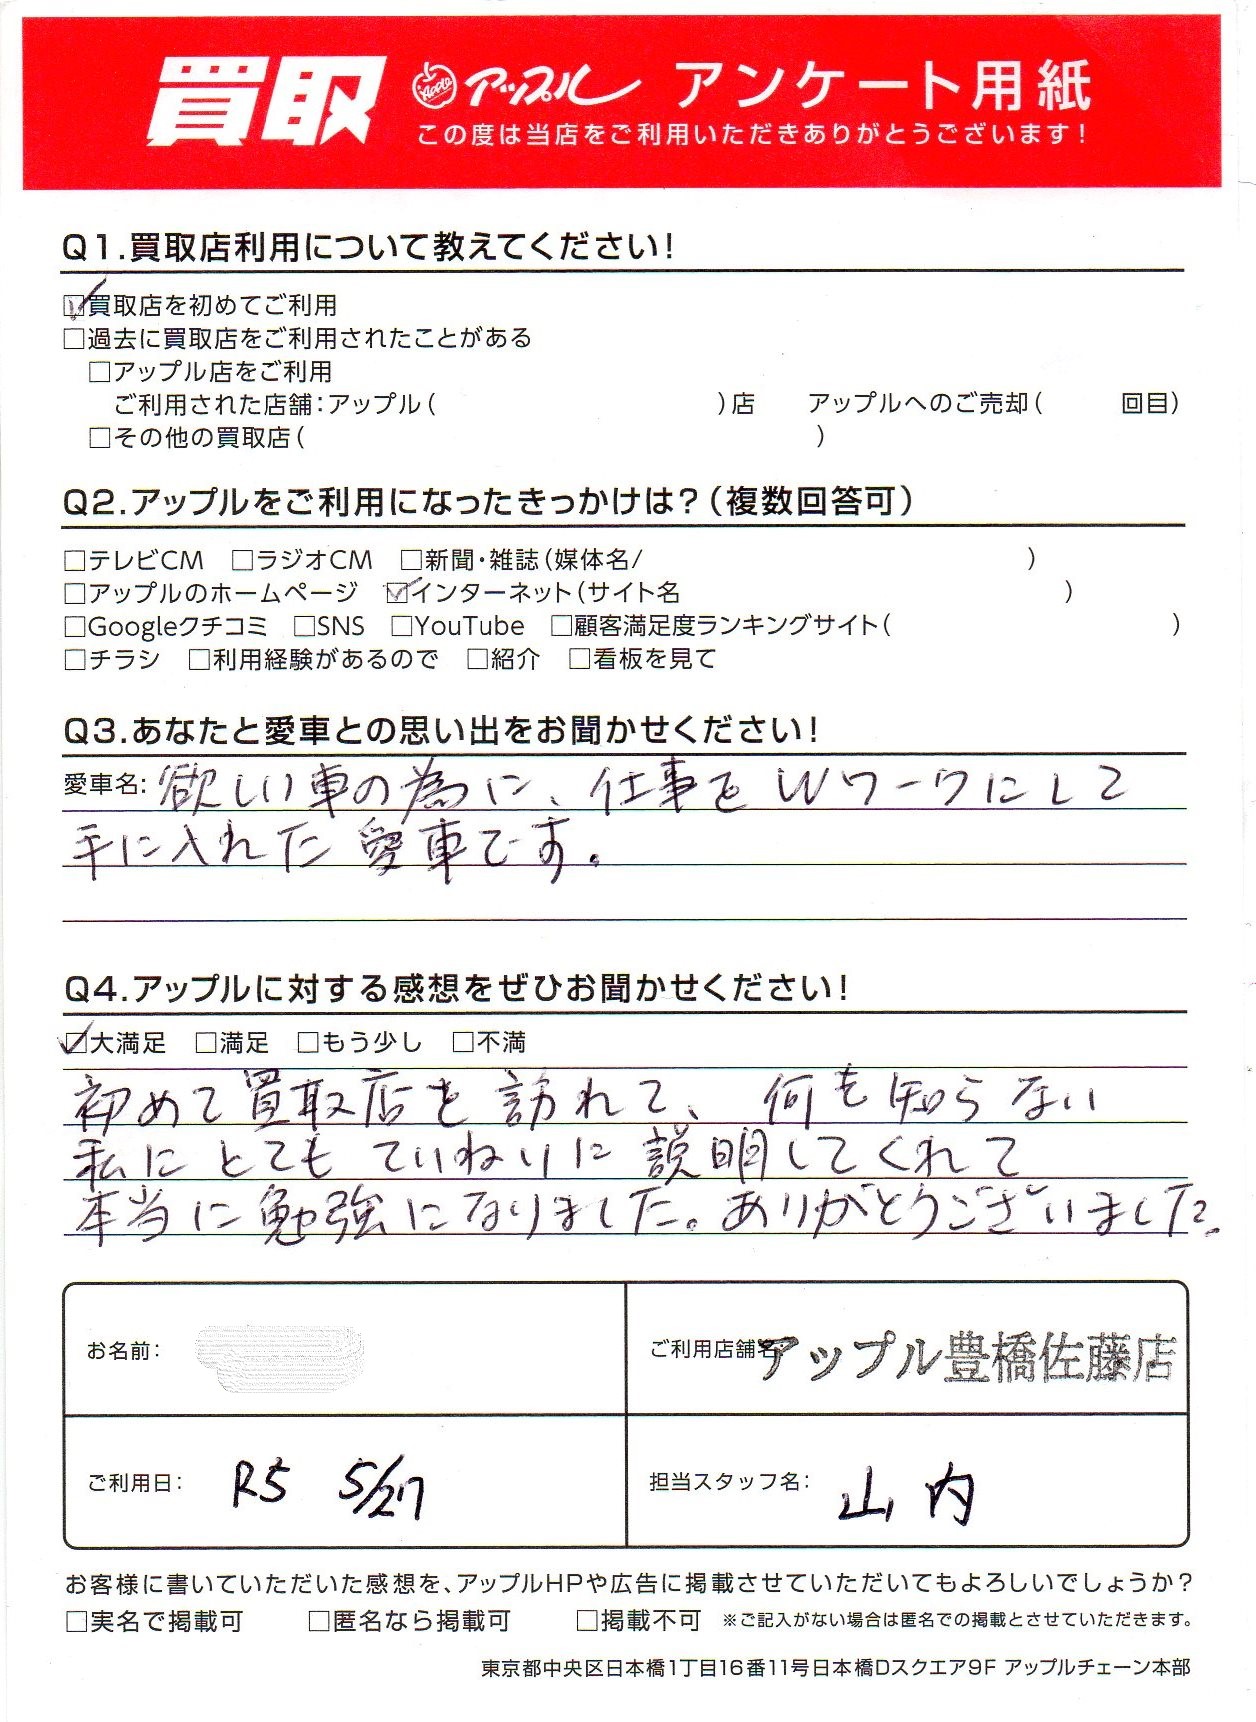 買取 Apple アップル アンケート用紙
この度は当店をご利用いただきありがとうございます！
Q1.買取店利用について教えてください！
☑買取店を初めてご利用
□過去に買取店をご利用されたことがある
□アップル店をご利用
ご利用された店舗：アップル（　）店　アップルへのご売却（　回目）
□その他の買取店（　）
Q2.アップルをご利用になったきっかけは？（複数回答可）
□テレビCM　□ラジオCM　□新聞・雑誌（媒体名/　）
□アップルのホームページ　☑インターネット（サイト名　）
□Googleクチコミ　□SNS　□YouTube　□顧客満足度ランキングサイト（　）
□チラシ　□利用経験があるので　□紹介　□看板を見て
Q3.あなたと愛車との思い出をお聞かせください！
愛車名：欲しい車の為に、仕事をWワークにして
手に入れた愛車です。
Q4.アップルに対する感想をぜひお聞かせください！
☑大満足　□満足　□もう少し　□不満
初めて買取店を訪れて、何も知らない
私にとてもていねいに説明してくれて
本当に勉強になりました。ありがとうございました。
お名前：
ご利用店舗名：アップル豊橋佐藤店
ご利用日：R5 5/27
担当スタッフ名：山内
お客様に書いていただいた感想を、アップルHPや広告に掲載させていただいてもよろしいでしょうか？
□実名で掲載可　□匿名なら掲載可　□掲載不可　※ご記入がない場合は匿名での掲載とさせていただきます。
東京都中央区日本橋1丁目16番11号日本橋Dスクエア9F アップルチェーン本部